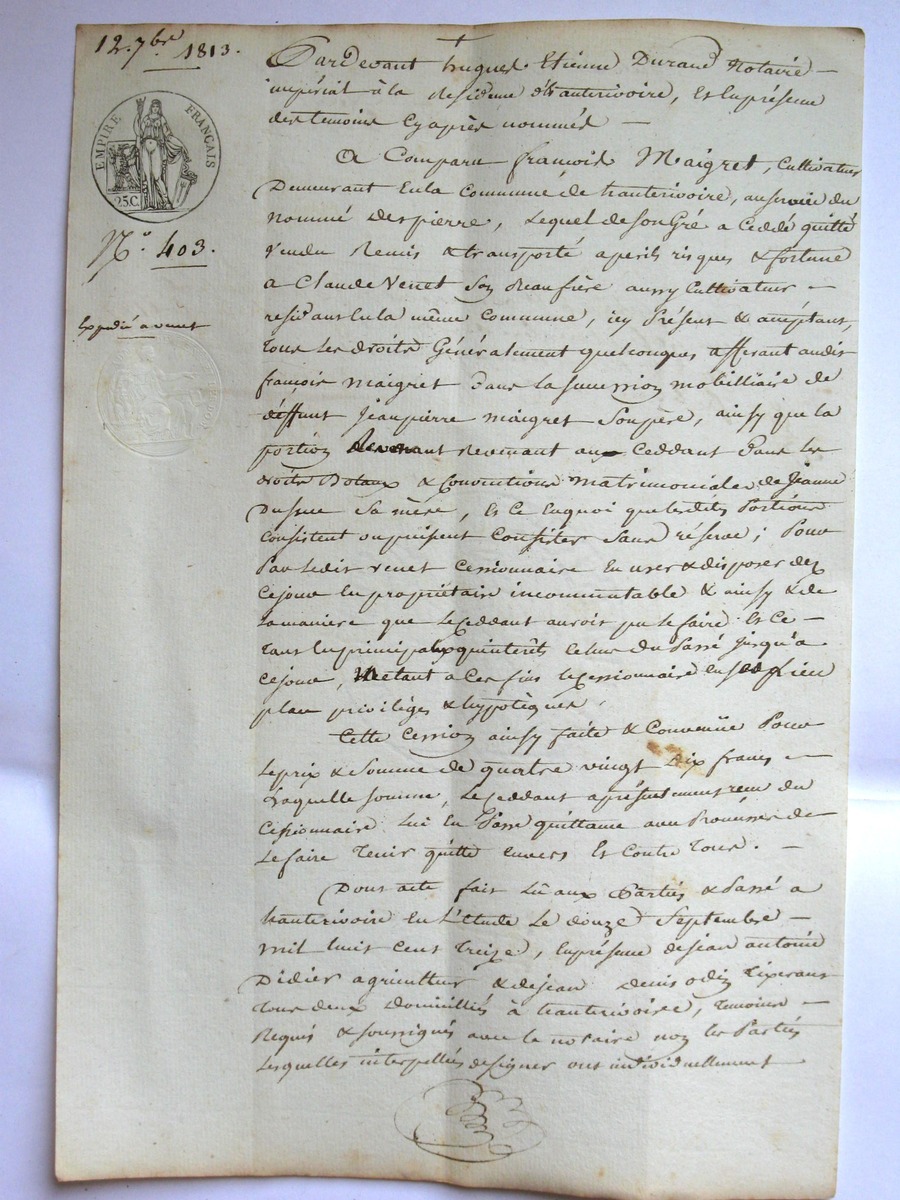 12. 7bre 1813.
EMPIRE FRANÇAIS
25.C.
N.° 403.
Expedié avant
Pardevant hugues Etienne Durand Notaire
impérial à la Residence d'hauterivoire, Et En présence
des temoins Cy après nommés
A Comparu françois Maigret, Cultivateur
Demeurant En la Commune de hauterivoire, au service du
nommé Despierre, Lequel de son Gré a Ceddé quitté
Vendu Remis & transporté a perils risques & fortune
a Claude Venet Son Beaufrère aussy Cultivateur
residant En la même Commune, icy Présent & aceptant,
tous Les droits Généralement quelconques afferant audit
françois maigret Dans La succession mobilliaire de
deffunt Jeanpierre maigret Son père, ainsy que la
portion Revenant au Ceddant Dans les
droits Dotaux & Conventions matrimoniales de Jeanne
Sa mère, Et Ce Enquoi que lesdits Portions
Consistent ou puissent Consister Sans réserve; Pour
Par Ledit Venet Cessionnaire En user & disposer dez
Cejour En propriétaire incommutable & ainsy & de
La manière que Le Ceddant auroit pu le faire Et Ce
Tant En principal qu'interêts Echus du Passé Jusqu'a
Cejour, Mettant a Ces fins le Cessionnaire En son Lieu
place privilèges & hypotèques.
Cette Cession ainsy faite & Convenüe Pour
Le prix & Somme de quatre vingt dix francs
Laquelle somme, Le Ceddant a présentement reçu du
Cessionnaire Lui En Passe quittance avec Promesses de
Le faire Tenir quitte Envers Et Contre Tous.
Dont acte fait Lû aux Parties & Passé a
hauterivoire En L'Etude Le douze Septembre
mil huit Cent Treize, En présence de jean antoine
Didier agriculteur & de jean Denis odin Tixerant
Tous deux Domiciliés à hauterivoire, Temoins
Requis & soussignés avec le notaire non les Parties
Lesquelles interpellées de signer ont individuellement